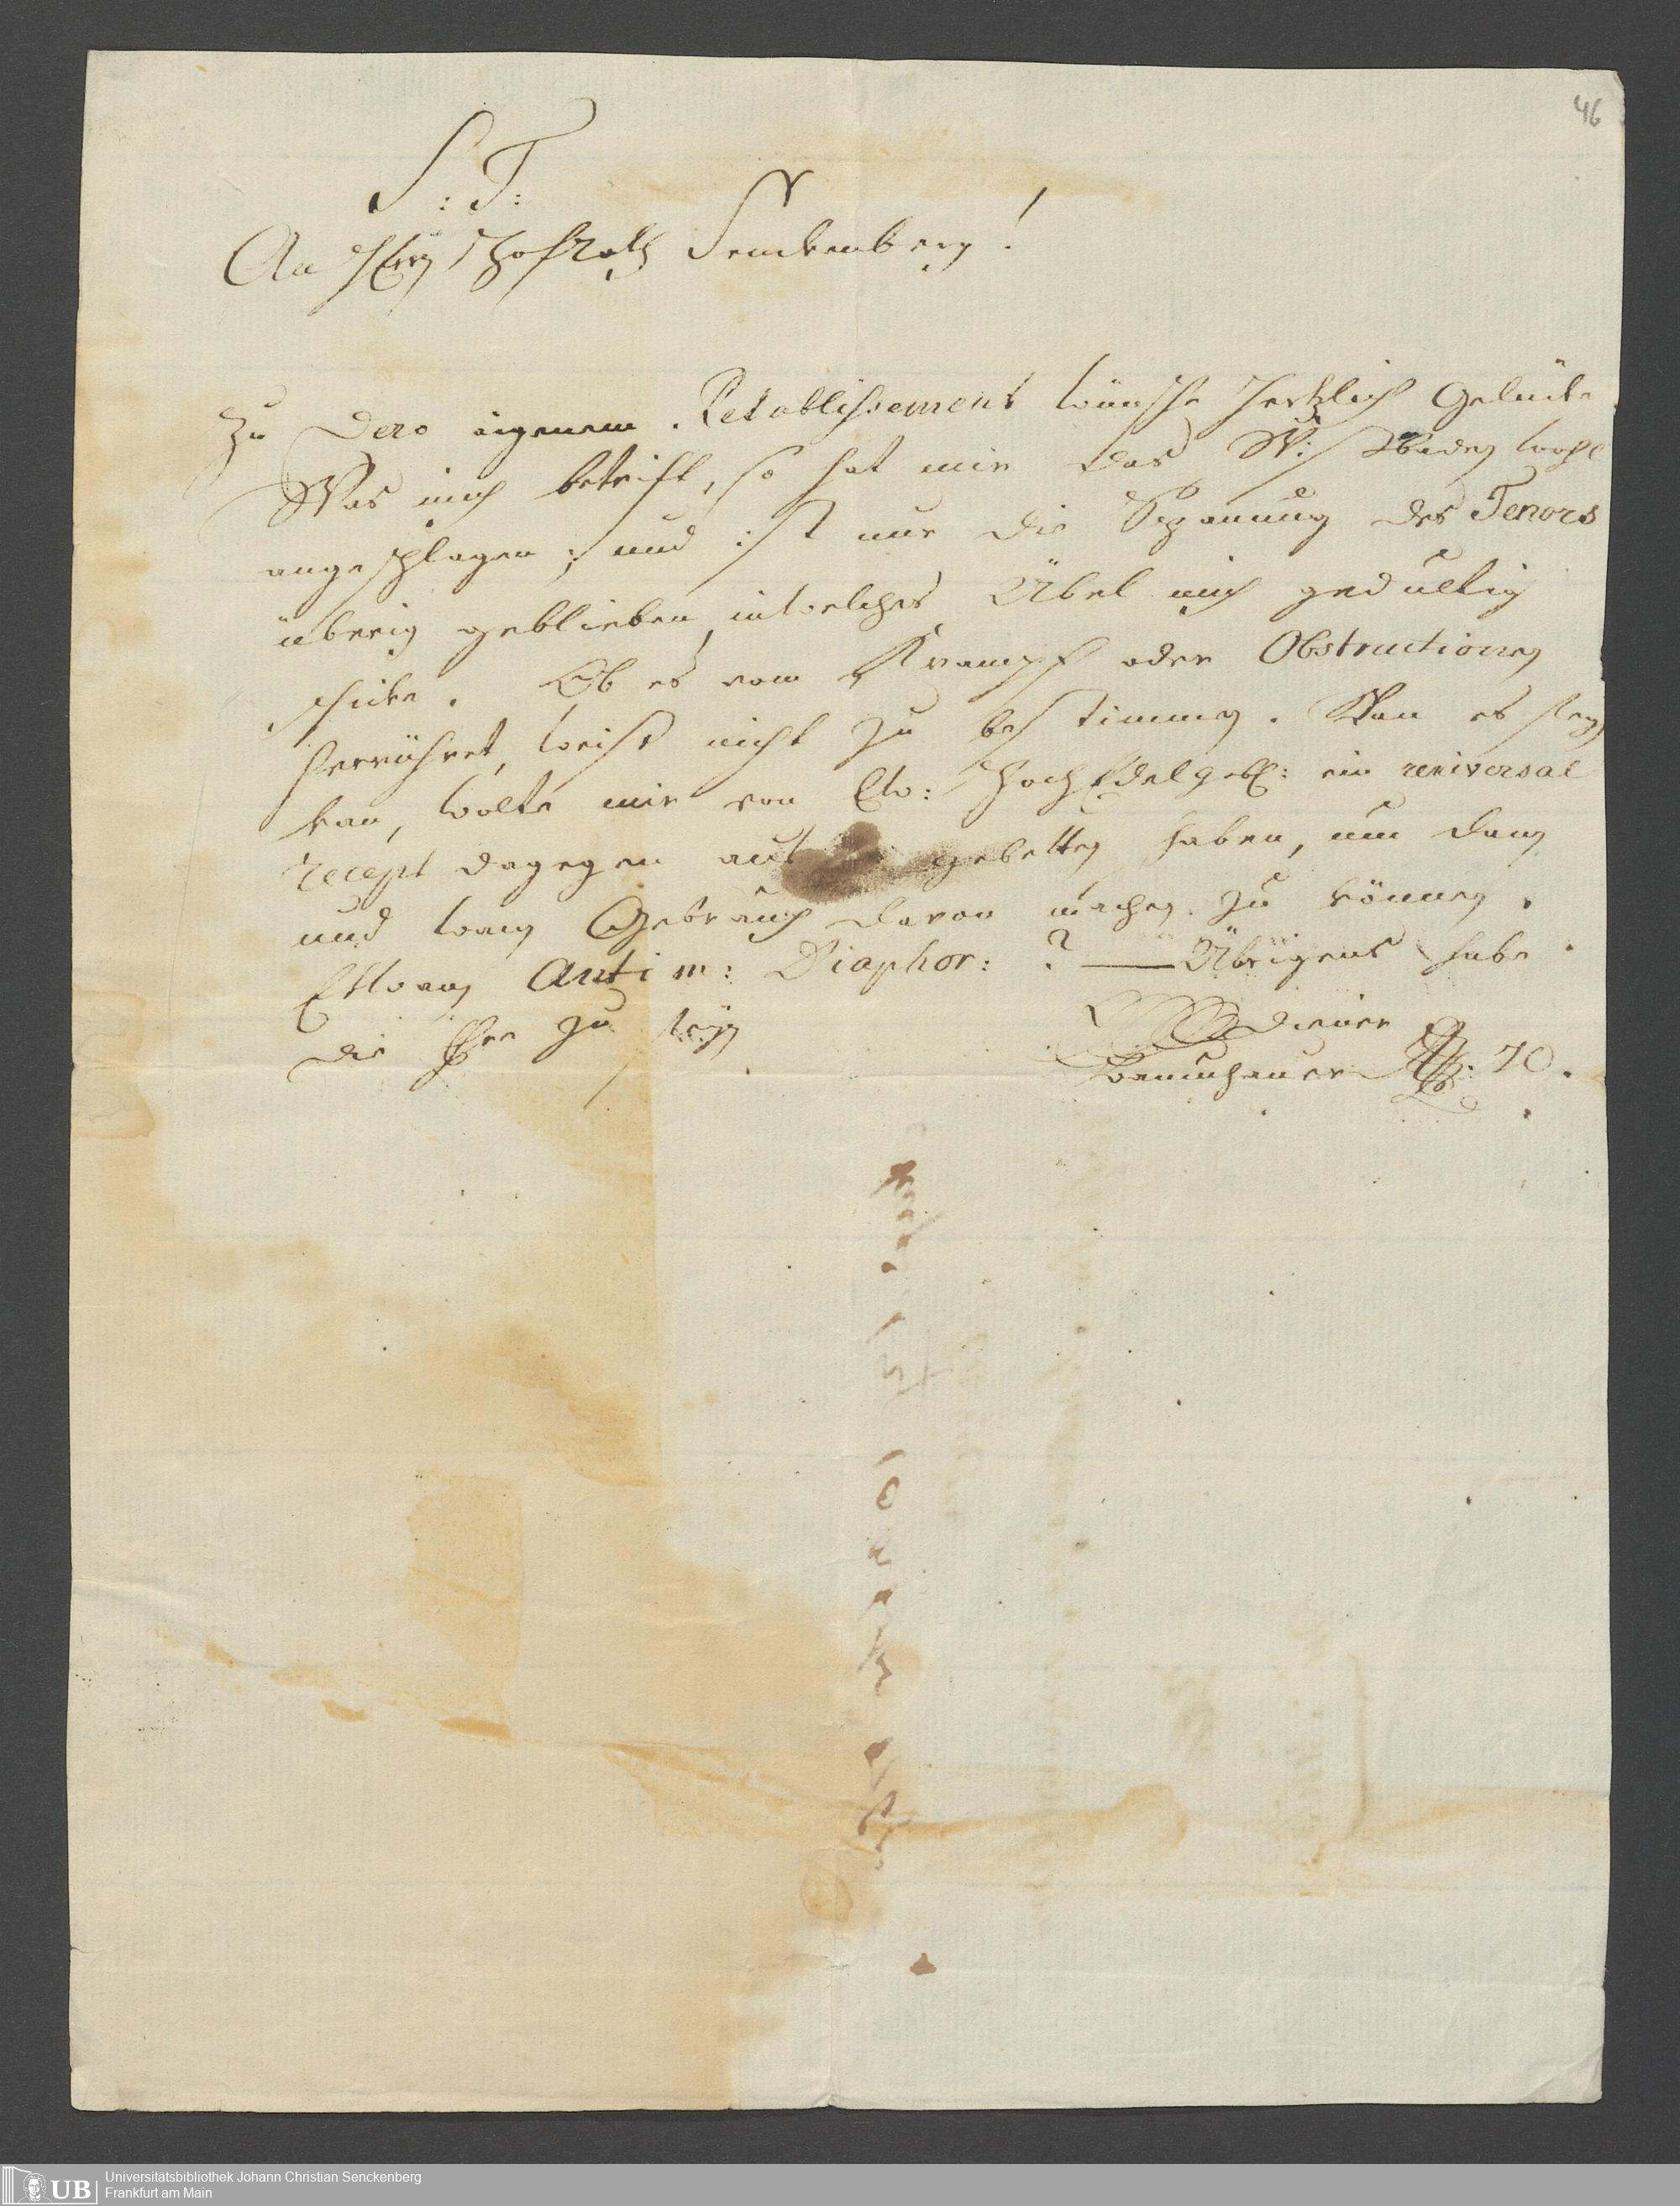 46
S: T:
An Herrn Hofrath Senckenberg!
Zu Dero eigenem Retablissement wünsche hertzlich Gelücke
Was mich betrift, so hat mir das W: Baden wohl
angeschlagen; und ist nur die Spannung des Tenors
überig geblieben, in welches Übel mich gedultig
schicke. Ob es vom Krampf oder Obstructionen
herrühret, weiß nicht zu bestimmen. Wan es seyn
kan, wolte mir von Ew: HochEdelgeb: ein universal
recept dagegen gebetten haben, um dann
und wann Gebrauch davon machen zu können.
Etwann Antim: Diaphor: ? — Übrigens habe
die Ehre zu seyn
diener
Baumhauer 70.
UB
Universitätsbibliothek Johann Christian Senckenberg
Frankfurt am Main